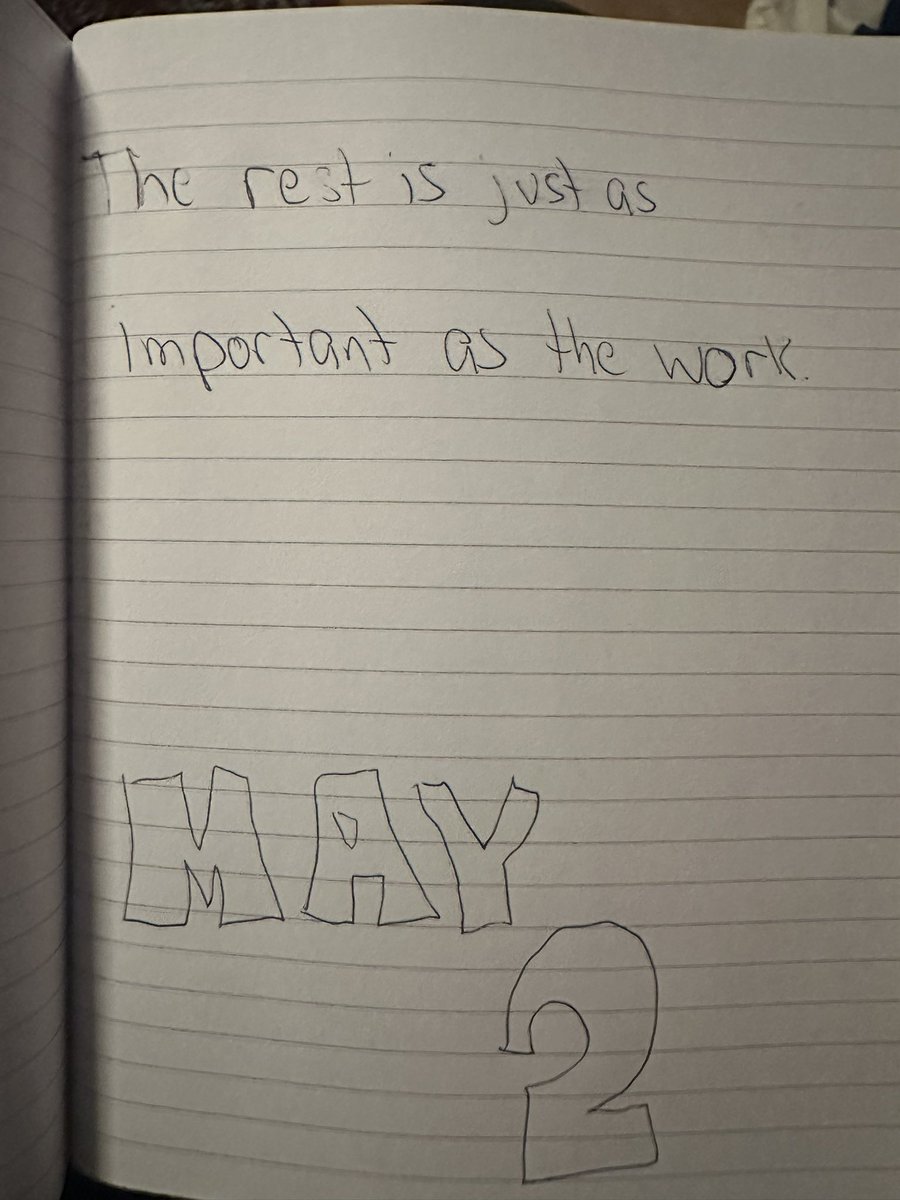 The rest is just as
Important as the work.
MAY
2